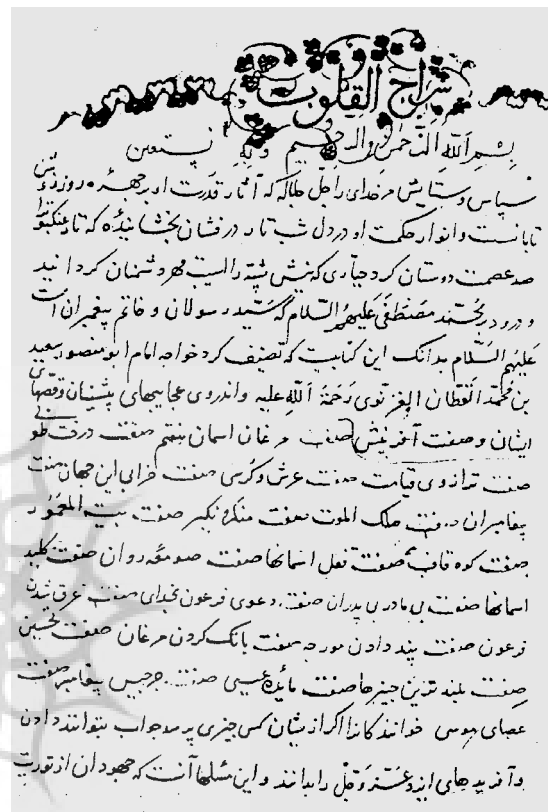 سراج القلوب
بسم الله الرحمن الرحیم وبه نستعین
سپاس و ستایش مر خدای را جل جلاله که آثار قدرت او بر چهرهٔ روز روشن
تابانست و انوار حکمت او در دل شب تار درفشان بخشاینده که تار عنکبوت را
صد عصمت دوستان کرد جباری که نیش پشه را قهر دشمنان کردانید
و درود بر محمد مصطفی علیهم السلام که سید رسولان و خاتم پیغمبران است
علیهم السلام بدانک این کتابیت که تصنیف کرد خواجه امام ابو منصور سعید
بن محمد القطان الغزنوی رحمة الله علیه و اندروی عجایبهای پیشینان و قصهای
ایشان و صفت آفرینش صفت مرغان اسمان بنتم صفت درخت طوبی
صفت ترازوی قیامت صفت عرش و کرسی صفت خرابی این جهان صفت
پیغامبران صفت ملک الموت صفت منکر نکیر صفت بیت المعمور
صفت کوه قاف صفت قفل اسمانها صفت صومعه روان صفت کلید
اسمانها صفت بی مادر بی پدران صفت دعوی فرعون بخدای صفت غرق شدن
فرعون صفت پند دادن مورچه صفت بانک کردن مرغان صفت نخستین
صفت بلند ترین چیزها صفت مائده عیسی صفت جرجیس پیغامبر صفت
عصای موسی خوانند کانرا اکر ازیشان کسی چیزی پرسد جواب بتوانند دادن
و آفریدهای ایزد عز و جل را بدانند و این مسئلها آنست که جهودان از توریت